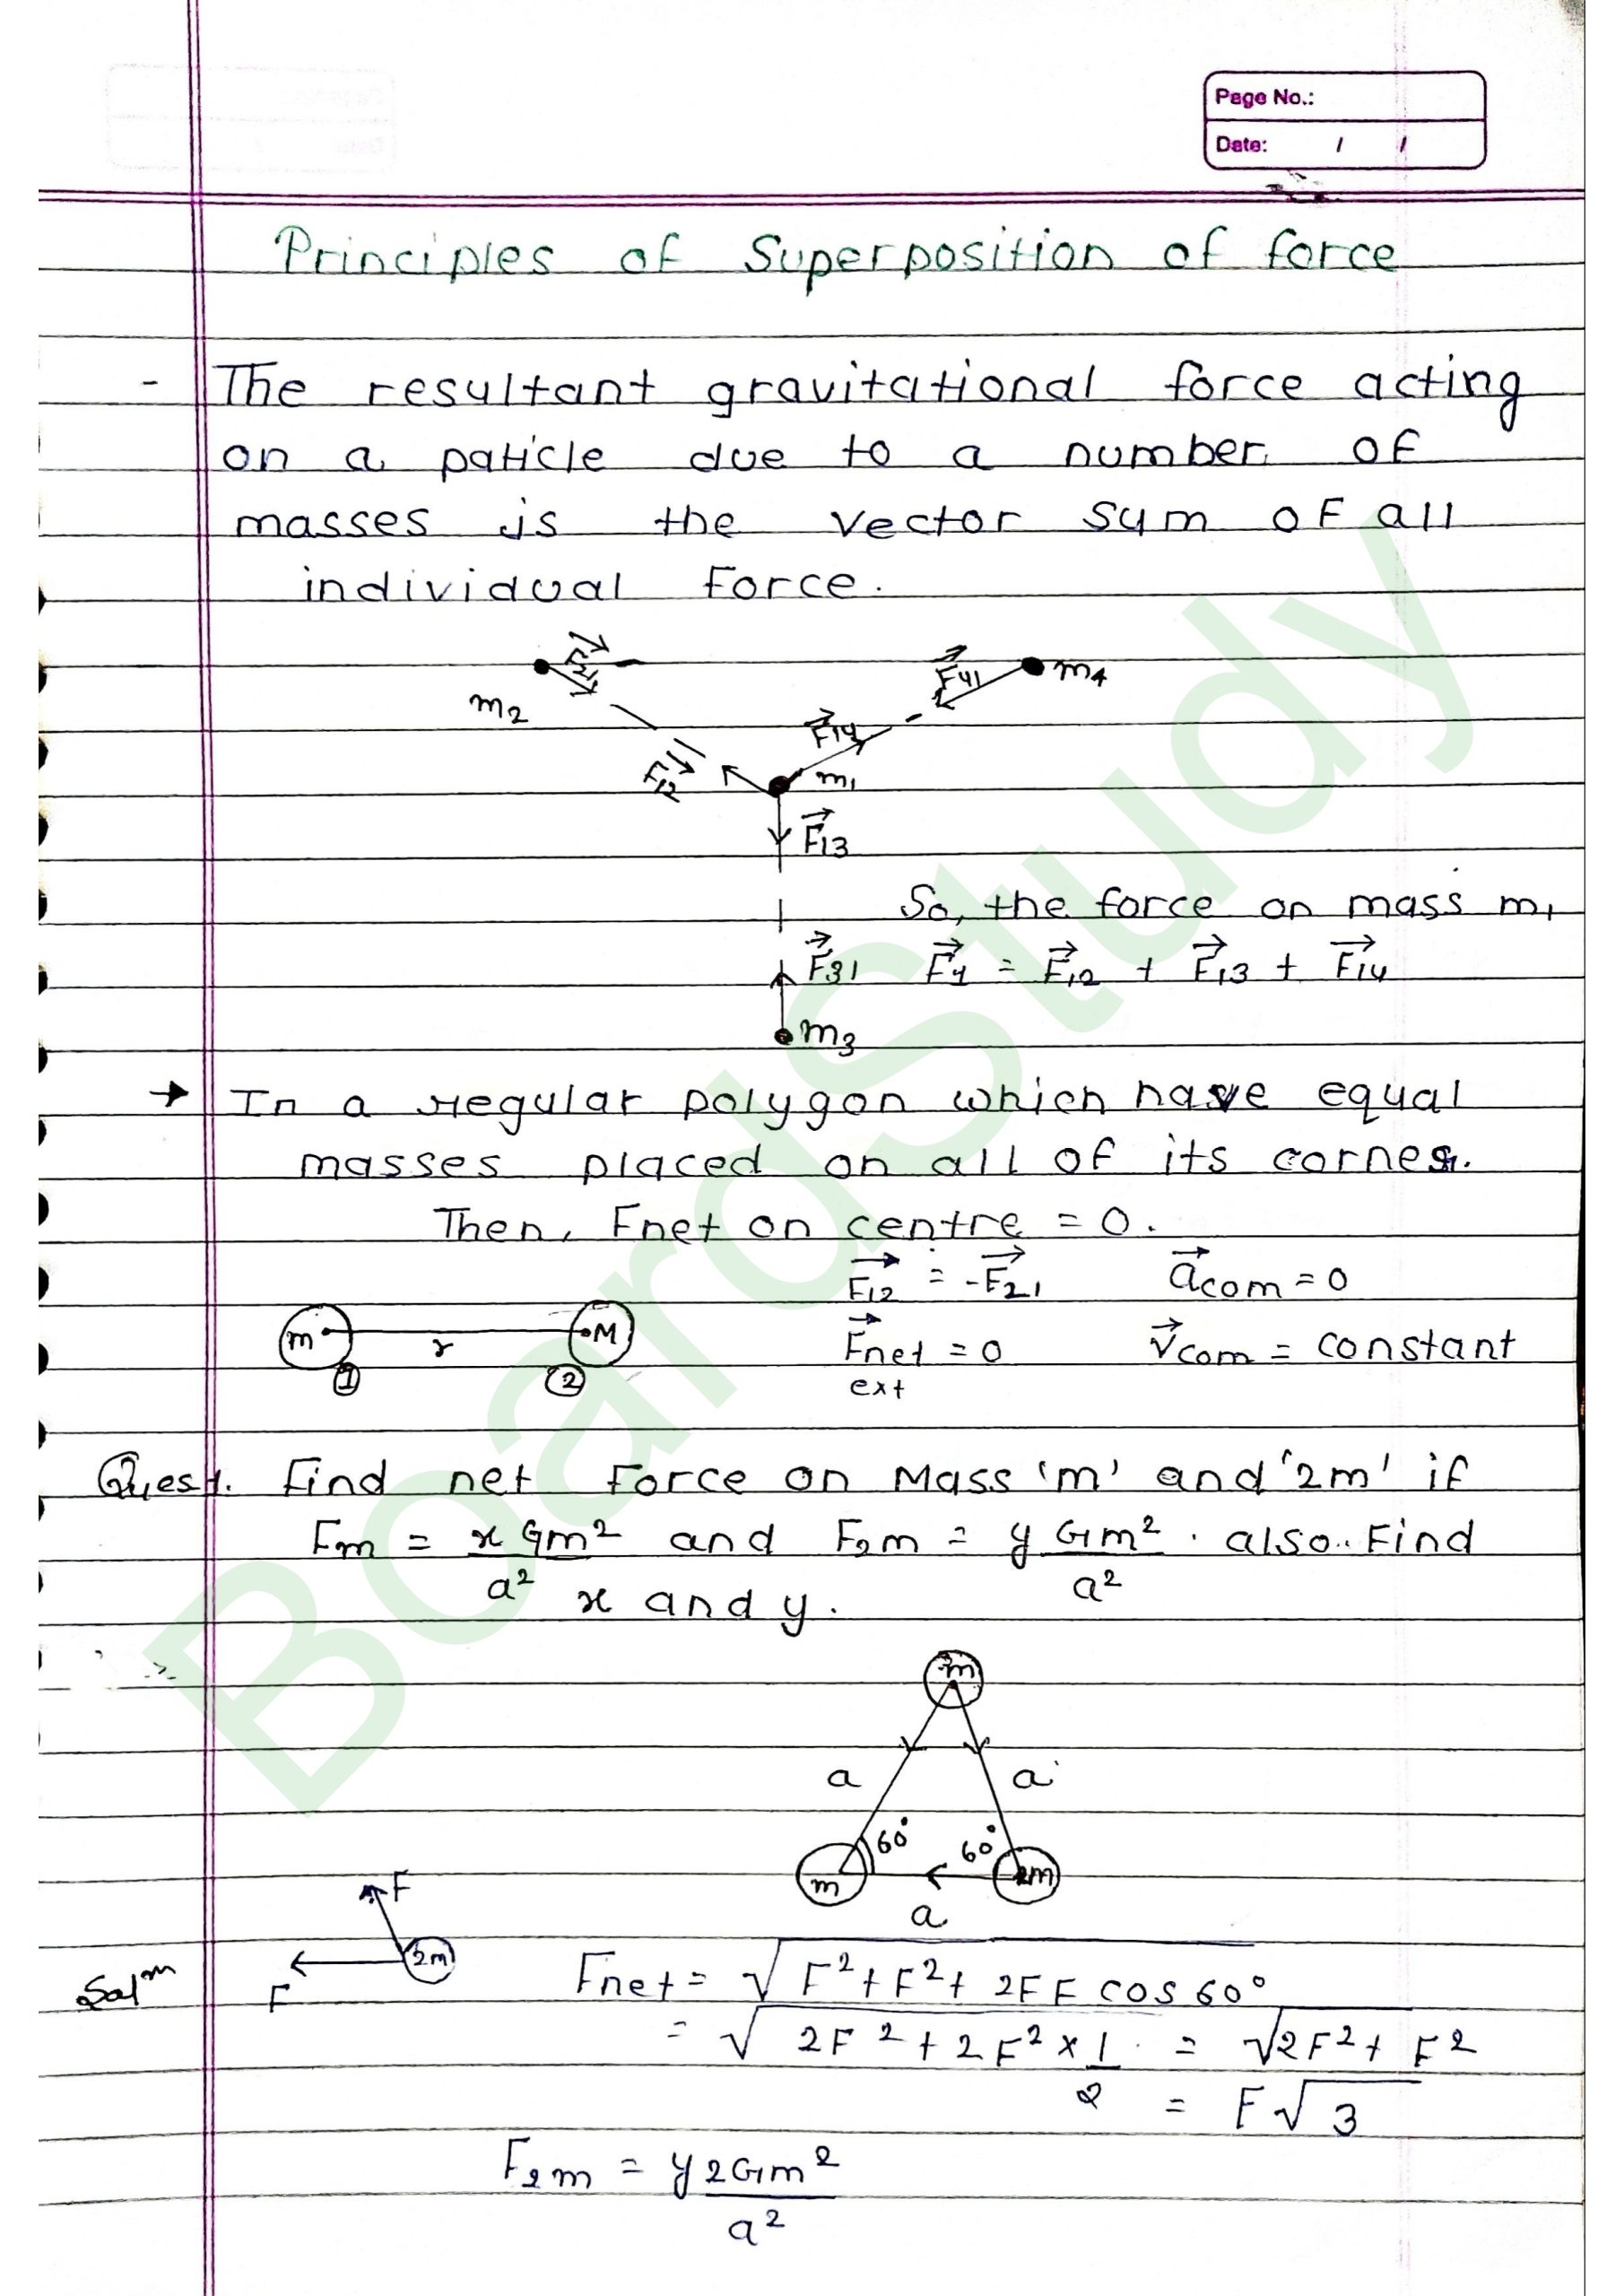 Page No.:
Date: / /
Principles of Superposition of force
- The resultant gravitational force acting
on a paticle due to a number of
masses is the vector sum of all
individual Force.
F₂₁
m₂
F₄₁ m₄
F₁₄
F₁₂
m₁
F₁₃
So, the force on mass m₁
F₃₁ F₁ = F₁₂ + F₁₃ + F₁₄
m₃
→ In a regular polygon which have equal
masses placed on all of its corner.
Then, Fnet on centre = 0.
F₁₂ = -F₂₁ a com = 0
m r M Fnet = 0 v com = constant
① ② ext
Ques1. Find net Force on Mass 'm' and '2m' if
Fm = x Gm²/a² and F₂m = y Gm²/a². also.. Find
x and y.
m
a a
60° 60°
m 2m
a
F
2m
F
Solⁿ Fnet = √F² + F² + 2FF cos 60°
= √2F² + 2F² × 1/2 = √2F² + F²
= F√3
F₂m = y 2Gm²/a²
BoardStudy